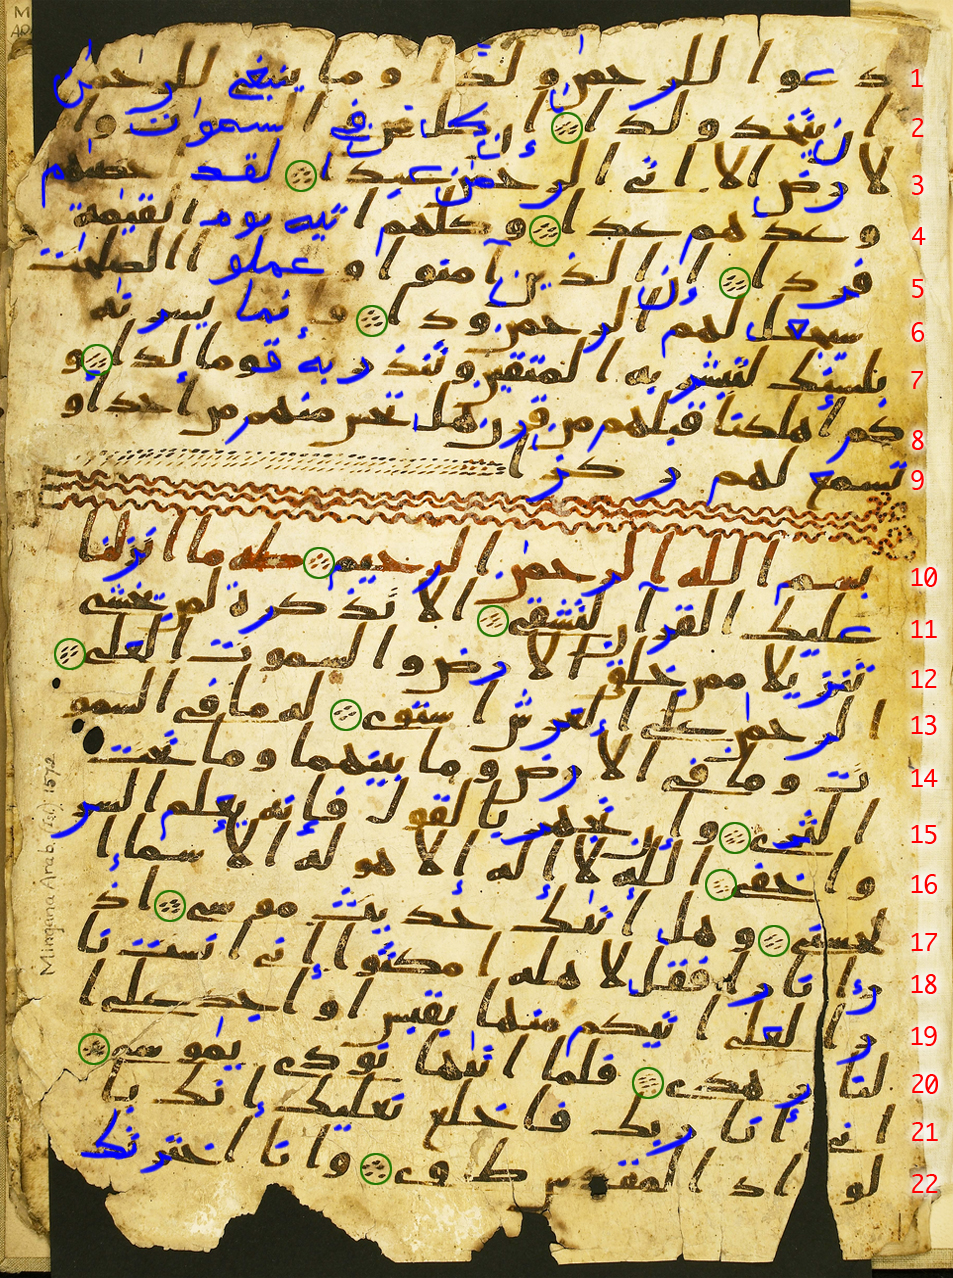 1 دعوا للرحمن ولدا وما ينبغي للرحمن
2 ان يتخذ ولدا ان كل من في السموات وا
3 لارض الا اتي الرحمن عبدا لقد احصهم
4 وعدهم عدا وكلهم اتيه يوم القيمة
5 فردا ان الذين آمنوا وعملوا الصلحت
6 سيجعل لهم الرحمن ودا فإنما يسرنه
7 بلسنك لتبشر به المتقين وتنذر به قوما لدا و
8 كم أهلكنا قبلهم من قرن هل تحس منهم من احد أو
9 تسمع لهم ركزا
10 بسم الله الرحمن الرحيم طه ما انزلنا
11 عليك القرآن لتشقى الا تذكرة لمن يخشى
12 تنزيلا ممن خلق الارض والسموت العلى
13 الرحمن على العرش استوى له ما في السمو
14 ت وما في الأرض وما بينهما وما تحت
15 الثرى وان تجهر بالقول فإنه يعلم السر
16 وأخفى الله لا إله إلا هو له الأسما ا
17 لحسنى وهل أتىك حديث موسى إذ
18 رأ نارا فقل لاهله امكثوا إني انست نا
19 را لعلي اتيكم منها بقبس أو أجد على ا
20 لنار هدى فلما أتىها نودي يموسى
21 إني أنا ربك فاخلع نعليك إنك با
22 لواد المقدس طوى وأنا اخترتك
Mingana Arab. (Isl.) 1572